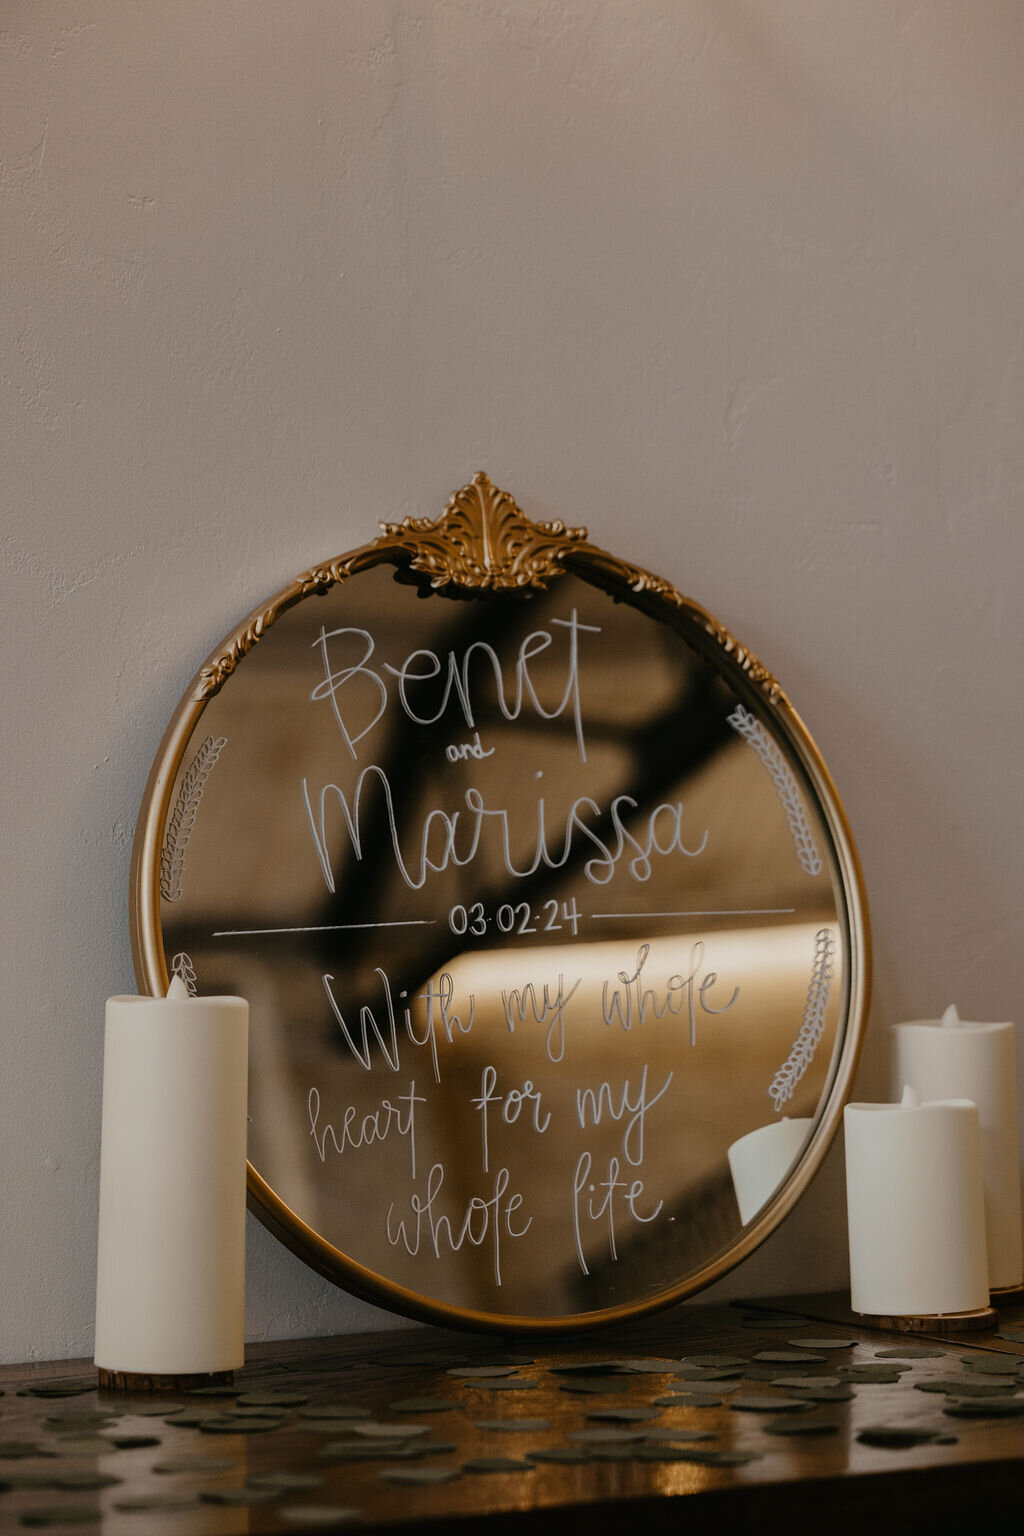 Benet
and
Marissa
03·02·24
With my whole
heart for my
whole life.